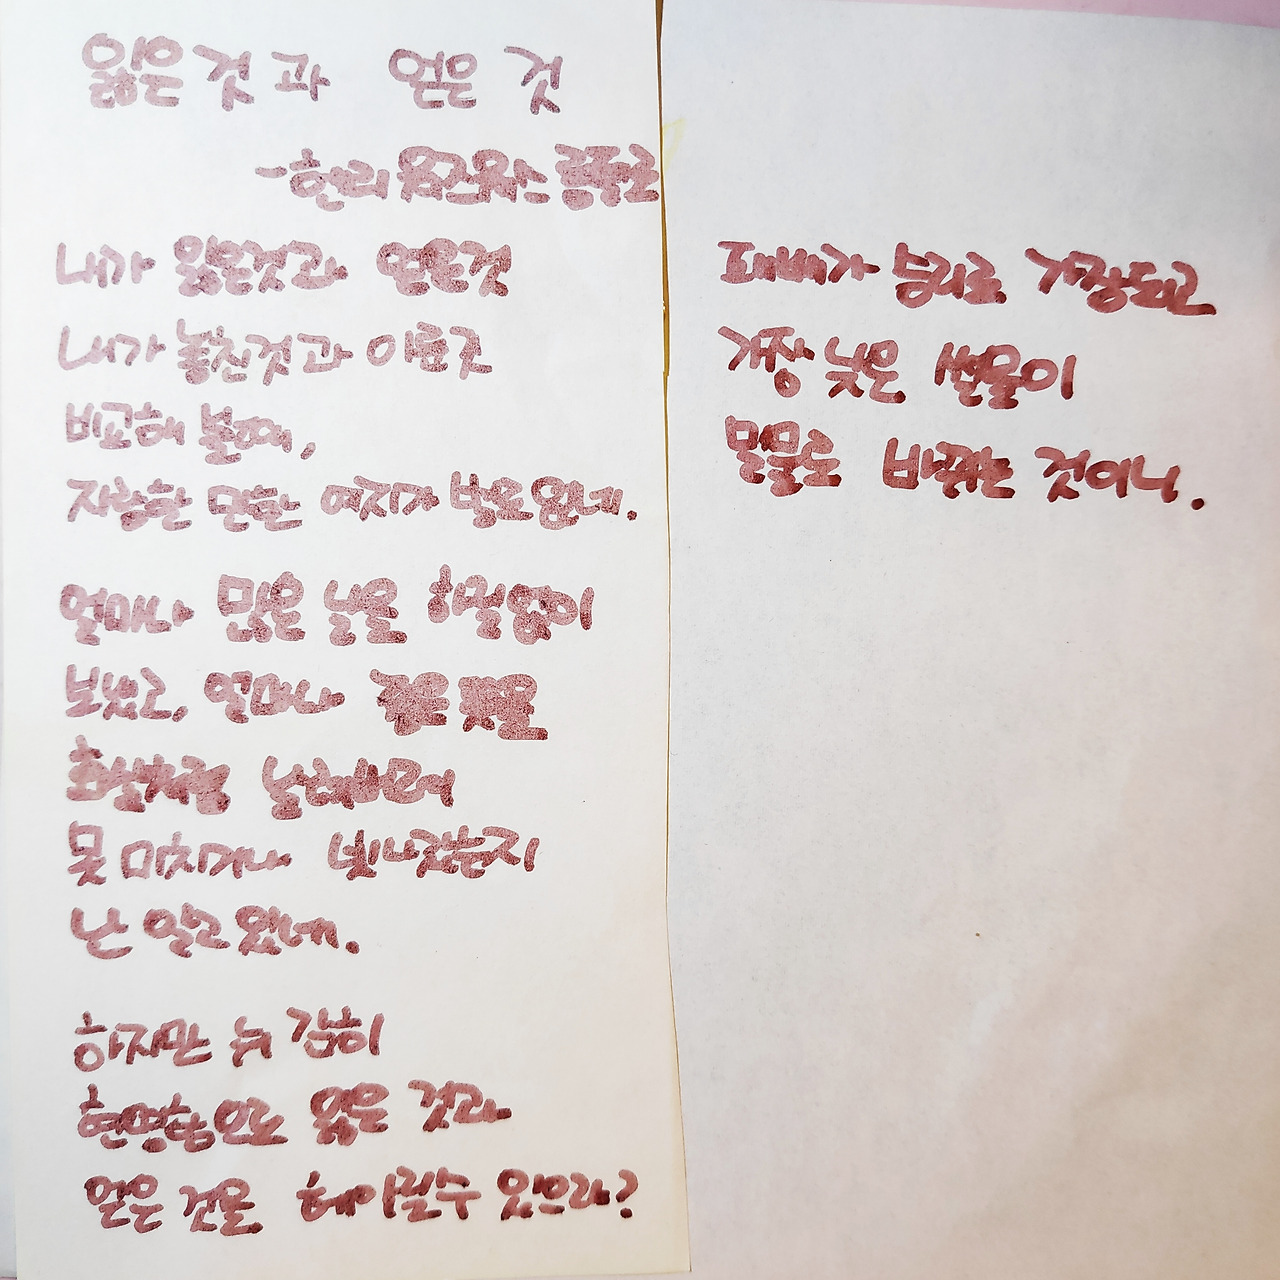 잃은 것과 얻은 것
-헨리 왜즈워스 롱펠로
내가 잃은것과 얻은것
내가 놓친것과 이룬것
비교해 볼때,
자랑할 만한 여지가 별로 없네.
얼마나 많은 날을 하릴없이
보냈고, 얼마나 좋은 뜻을
화살처럼 날려버려
못 미치거나 빗나갔는지
난 알고 있네.
하지만 뉘 감히
현명함으로 잃은 것과
얻은 것을 헤아릴 수 있으랴?
패배가 승리로 가장되고
가장 낮은 썰물이
밀물로 바뀌는 것이니.